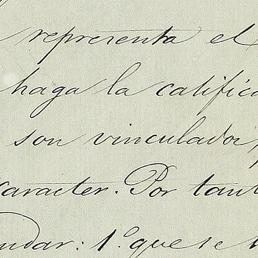 representa el
haga la califica
son vinculador,
caracter. Por tant
ndar: 1.º que se